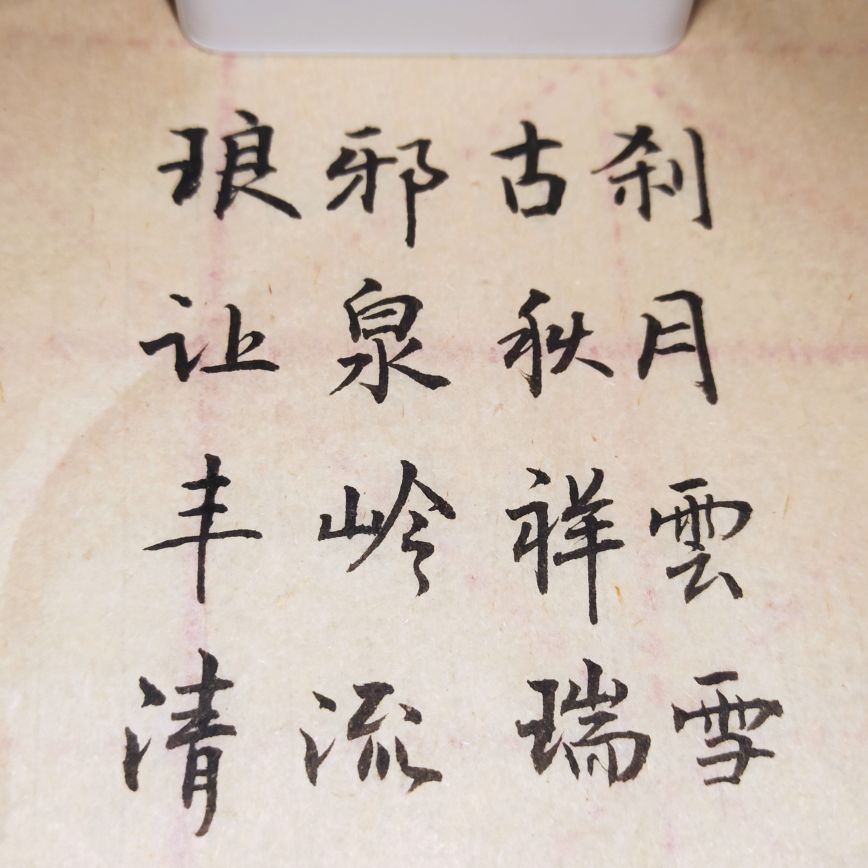 琅邪古刹
让泉秋月
丰岭祥雲
清流瑞雪